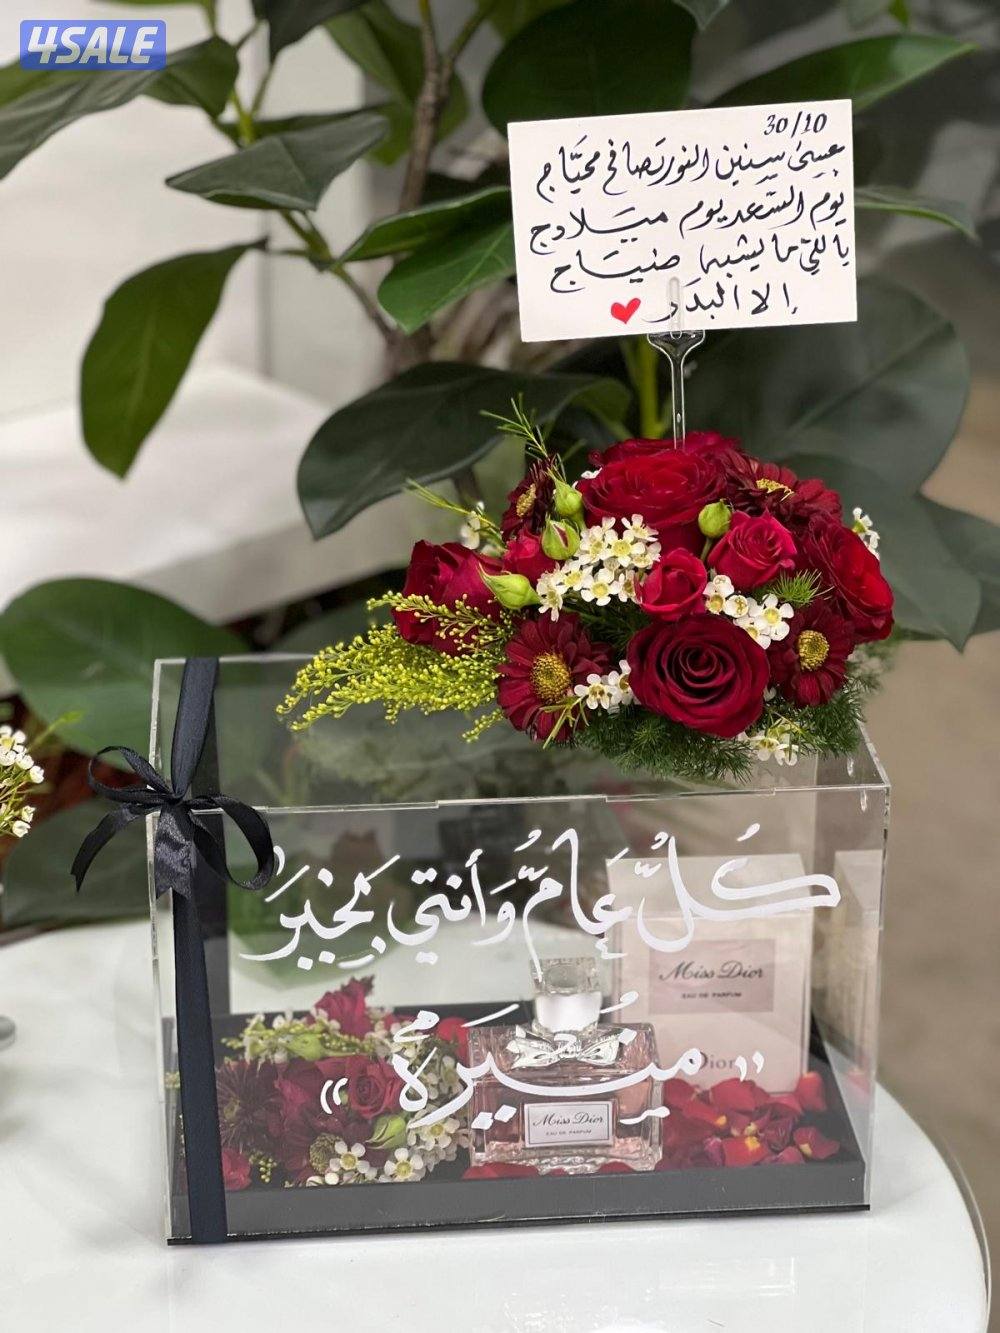 4SALE
30/10
عسى سنين النور تصافح محيّاج
يوم السّعد يوم ميلادج
ياللي ما يشبه ضيّاج
إلا البدر
كُلُّ عَامٌ وَأنتي بَخيرَ
Miss Dior
EAU DE PARFUM
Dior
"مُنِيرَةْ"
Miss Dior
EAU DE PARFUM